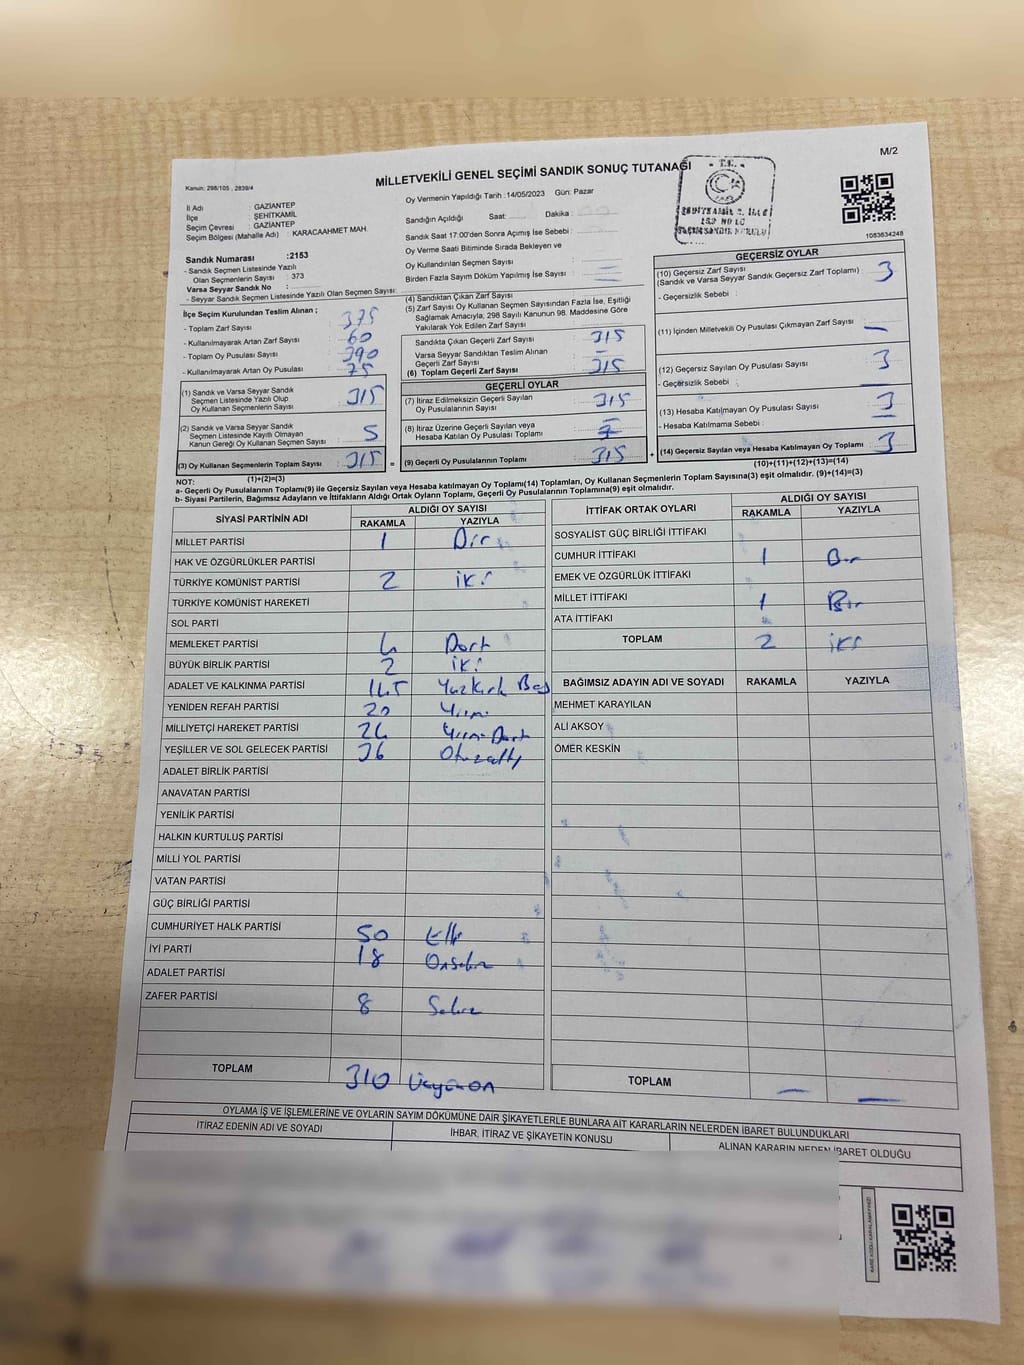 M/2
MİLLETVEKİLİ GENEL SEÇİMİ SANDIK SONUÇ TUTANAĞI
Kanun: 298/105 , 2839/4
İl Adı : GAZİANTEP
İlçe : ŞEHİTKAMİL
Seçim Çevresi : GAZİANTEP
Seçim Bölgesi (Mahalle Adı) : KARACAAHMET MAH.
Sandık Numarası :2153
- Sandık Seçmen Listesinde Yazılı
Olan Seçmenlerin Sayısı : 373
Varsa Seyyar Sandık No :
- Seyyar Sandık Seçmen Listesinde Yazılı Olan Seçmen Sayısı:
Oy Vermenin Yapıldığı Tarih :14/05/2023 Gün: Pazar
Sandığın Açıldığı Saat: Dakika :
Sandık Saat 17:00'den Sonra Açılmış İse Sebebi :
Oy Verme Saati Bitiminde Sırada Bekleyen ve
Oy Kullandırılan Seçmen Sayısı :
Birden Fazla Sayım Döküm Yapılmış İse Sayısı :
T.C.
1083634248
İlçe Seçim Kurulundan Teslim Alınan ;
- Toplam Zarf Sayısı : 375
- Kullanılmayarak Artan Zarf Sayısı : 60
- Toplam Oy Pusulası Sayısı : 390
- Kullanılmayarak Artan Oy Pusulası : 75
(1) Sandık ve Varsa Seyyar Sandık
Seçmen Listesinde Yazılı Olup
Oy Kullanan Seçmenlerin Sayısı : 315
(2) Sandık ve Varsa Seyyar Sandık
Seçmen Listesinde Kayıtlı Olmayan
Kanun Gereği Oy Kullanan Seçmen Sayısı : 5
(3) Oy Kullanan Seçmenlerin Toplam Sayısı : 315 =
(1)+(2)=(3)
(4) Sandıktan Çıkan Zarf Sayısı
(5) Zarf Sayısı Oy Kullanan Seçmen Sayısından Fazla İse, Eşitliği
Sağlamak Amacıyla, 298 Sayılı Kanunun 98. Maddesine Göre
Yakılarak Yok Edilen Zarf Sayısı
Sandıkta Çıkan Geçerli Zarf Sayısı : 315
Varsa Seyyar Sandıktan Teslim Alınan
Geçerli Zarf Sayısı : —
(6) Toplam Geçerli Zarf Sayısı : 315
GEÇERLİ OYLAR
(7) İtiraz Edilmeksizin Geçerli Sayılan
Oy Pusulalarının Sayısı : 315
(8) İtiraz Üzerine Geçerli Sayılan veya
Hesaba Katılan Oy Pusulaları Toplamı :
(9) Geçerli Oy Pusulalarının Toplamı : 315 +
GEÇERSİZ OYLAR
(10) Geçersiz Zarf Sayısı
(Sandık ve Varsa Seyyar Sandık Geçersiz Zarf Toplamı) : 3
- Geçersizlik Sebebi :
(11) İçinden Milletvekili Oy Pusulası Çıkmayan Zarf Sayısı : —
(12) Geçersiz Sayılan Oy Pusulası Sayısı : 3
- Geçersizlik Sebebi :
(13) Hesaba Katılmayan Oy Pusulası Sayısı : 3
- Hesaba Katılmama Sebebi :
(14) Geçersiz Sayılan veya Hesaba Katılmayan Oy Toplamı : 3
(10)+(11)+(12)+(13)=(14)
NOT:
a- Geçerli Oy Pusulalarının Toplamı(9) ile Geçersiz Sayılan veya Hesaba katılmayan Oy Toplamı(14) Toplamları, Oy Kullanan Seçmenlerin Toplam Sayısına(3) eşit olmalıdır. (9)+(14)=(3)
b- Siyasi Partilerin, Bağımsız Adayların ve İttifakların Aldığı Ortak Oyların Toplamı, Geçerli Oy Pusulalarının Toplamına(9) eşit olmalıdır.
SİYASİ PARTİNİN ADI ALDIĞI OY SAYISI
RAKAMLA YAZIYLA
MİLLET PARTİSİ 1 Bir
HAK VE ÖZGÜRLÜKLER PARTİSİ
TÜRKİYE KOMÜNİST PARTİSİ 2 iki
TÜRKİYE KOMÜNİST HAREKETİ
SOL PARTİ
MEMLEKET PARTİSİ 4 Dört
BÜYÜK BİRLİK PARTİSİ 2 iki
ADALET VE KALKINMA PARTİSİ 145 Yüzkırk Beş
YENİDEN REFAH PARTİSİ 20 Yirmi
MİLLİYETÇİ HAREKET PARTİSİ 24 Yirmi Dört
YEŞİLLER VE SOL GELECEK PARTİSİ 36 Otuzaltı
ADALET BİRLİK PARTİSİ
ANAVATAN PARTİSİ
YENİLİK PARTİSİ
HALKIN KURTULUŞ PARTİSİ
MİLLİ YOL PARTİSİ
VATAN PARTİSİ
GÜÇ BİRLİĞİ PARTİSİ
CUMHURİYET HALK PARTİSİ 50 Elli
İYİ PARTİ 18 Onsekiz
ADALET PARTİSİ
ZAFER PARTİSİ 8 Sekiz
TOPLAM 310 Üçyüzon
İTTİFAK ORTAK OYLARI ALDIĞI OY SAYISI
RAKAMLA YAZIYLA
SOSYALİST GÜÇ BİRLİĞİ İTTİFAKI
CUMHUR İTTİFAKI 1 Bir
EMEK VE ÖZGÜRLÜK İTTİFAKI
MİLLET İTTİFAKI 1 Bir
ATA İTTİFAKI
TOPLAM 2 iki
BAĞIMSIZ ADAYIN ADI VE SOYADI RAKAMLA YAZIYLA
MEHMET KARAYILAN
ALİ AKSOY
ÖMER KESKİN
TOPLAM — —
OYLAMA İŞ VE İŞLEMLERİNE VE OYLARIN SAYIM DÖKÜMÜNE DAİR ŞİKAYETLERLE BUNLARA AİT KARARLARIN NELERDEN İBARET BULUNDUKLARI
İTİRAZ EDENİN ADI VE SOYADI
İHBAR, İTİRAZ VE ŞİKAYETİN KONUSU
ALINAN KARARIN NEDEN İBARET OLDUĞU